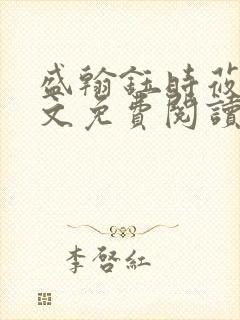 盛翰鈺時莜
文免費閱讀
李啓紅